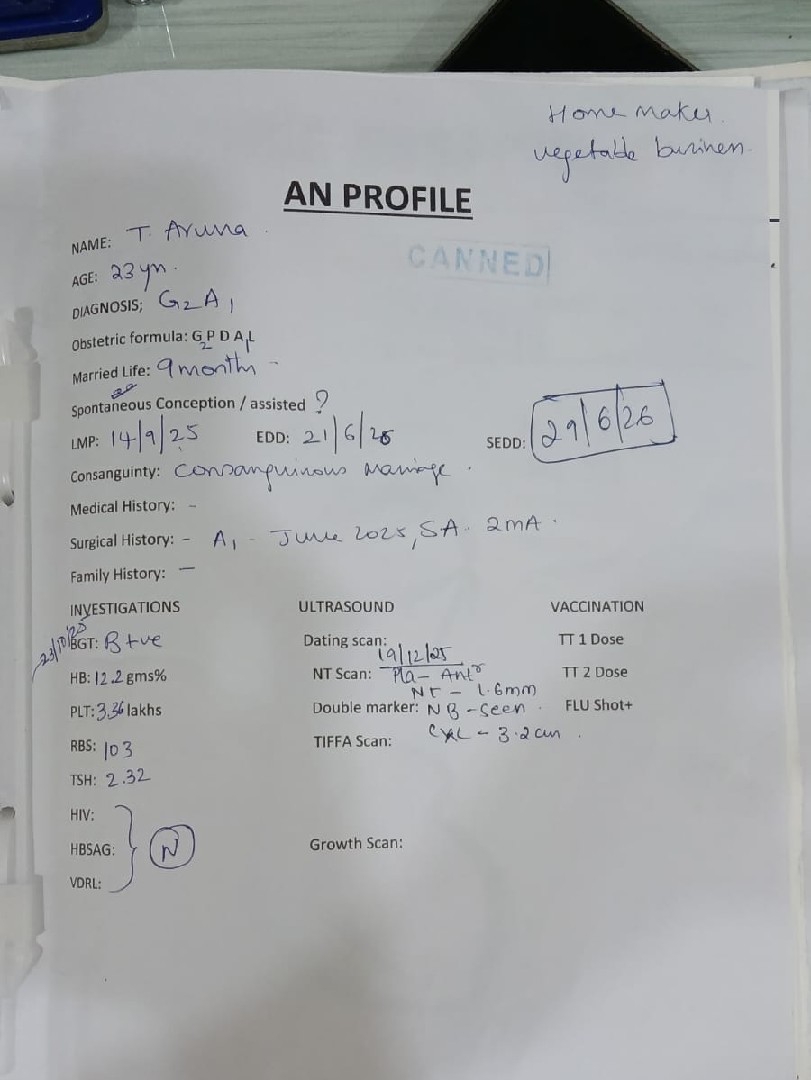 Home maker.
vegetable business.
AN PROFILE
NAME: T. Aruna
CANNED
AGE: 23 yrs.
DIAGNOSIS; G2A1
Obstetric formula: G2 P D A1 L
Married Life: 9 months -
Spontaneous Conception / assisted ?
LMP: 14/9/25 EDD: 21/6/26 SEDD: 29/6/26
Consanguinty: Consanguinous marriage.
Medical History: -
Surgical History: - A1 - June 2025, SA - 2mA.
Family History: —
INVESTIGATIONS ULTRASOUND VACCINATION
23/10/25 BGT: B +ve Dating scan: TT 1 Dose
19/12/25
HB: 12.2 gms% NT Scan: Pla - Antr TT 2 Dose
NT - 1.6mm
PLT: 3.36 lakhs Double marker: NB - Seen. FLU Shot+
RBS: 103 TIFFA Scan: CXL - 3.2 cm.
TSH: 2.32
HIV:
HBSAG: N Growth Scan:
VDRL: